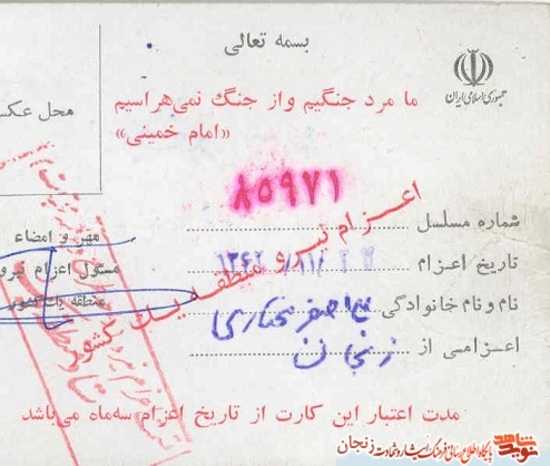 بسمه تعالی
جمهوری اسلامی ایران
ما مرد جنگیم و از جنگ نمی‌هراسیم
«امام خمینی»
محل عکس
۸۵۹۷۱
شماره مسلسل
اعزام نیرو منطقه یک کشور
تاریخ اعزام ۱۳۶۲/۱۱/۲۲
نام و نام خانوادگی علی اصغر مختاری
اعزامی از زنجان
مهر و امضاء
مسئول اعزام نیرو
منطقه یک کشور
مدت اعتبار این کارت از تاریخ اعزام سه ماه می‌باشد
نوید شاهد
پایگاه اطلاع رسانی فرهنگ ایثار و شهادت زنجان